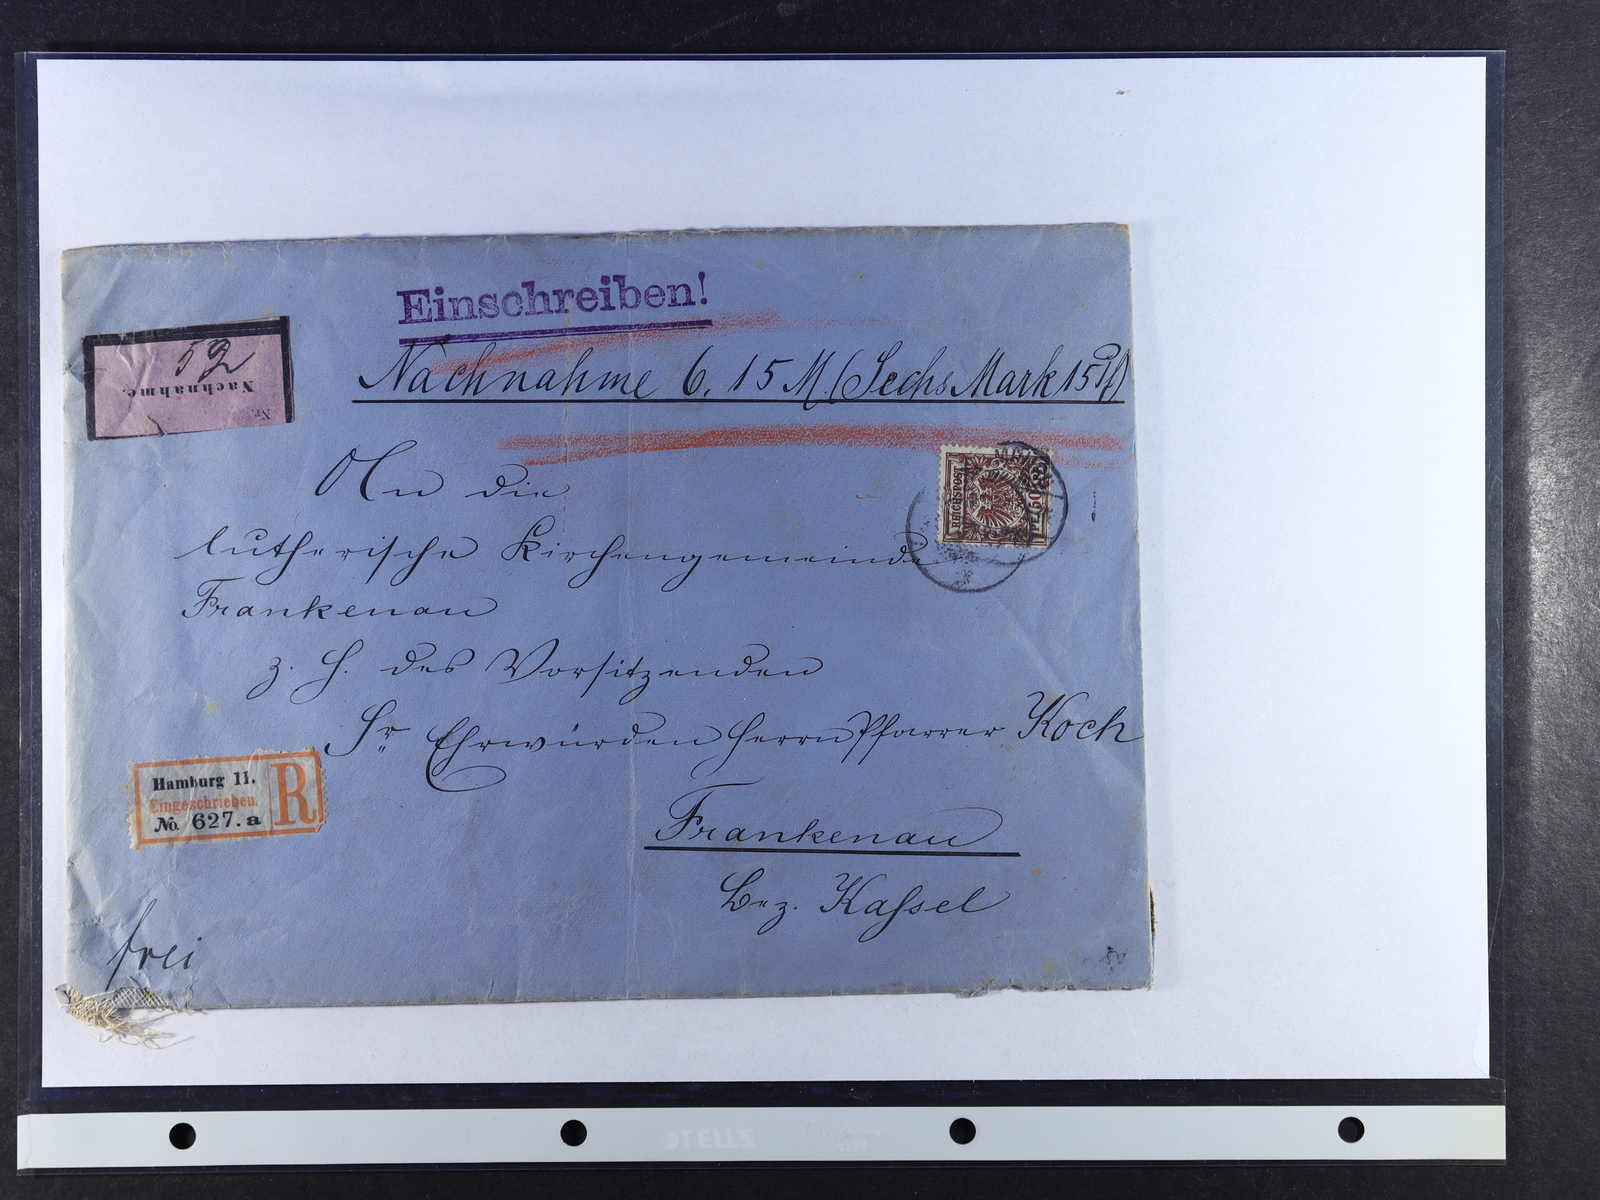 Einschreiben!
Nachnahme 6. 15 M. (Sechs Mark 15 Pf)
52
Nachnahme.
Nr.
An die
lutherische Kirchengemeinde
Frankenau
z. H. des Vorsitzenden
Sr. Ehrwürden Herrn Pfarrer Koch
Frankenau
Bez. Kassel
REICHSPOST
50
Hamburg 11.
Eingeschrieben.
No. 627. a
R
frei